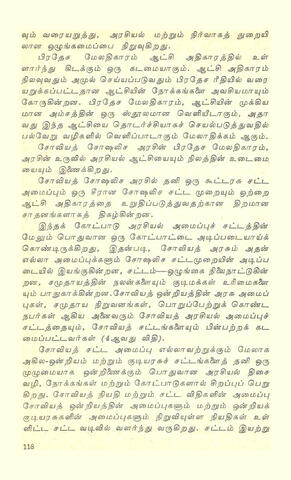 வும் வரையறுத்து. அரசியல் மற்றும் நிர்வாகத் துறையி
லான ஒழுங்கமைப்பை நிறுவுகிறது.
பிரதேச மேலதிகாரம் ஆட்சி அதிகாரத்தில் உள்
ளார்ந்து கிடக்கும் ஒரு கடமையாகும். ஆட்சி அதிகாரம்
நிலவுவதும் அமுல் செய்யப்படுவதும் பிரதேச ரீதியில் வரை
யறுக்கப்பட்டதான ஆட்சியின் நோக்கங்களை அவசியமாயும்
கோருகின்றன. பிரதேச மேலதிகாரம், ஆட்சியின் முக்கிய
மான அம்சத்தின் ஒரு ஸ்தூலமான வெளியீடாகும், அதா
வது இந்த ஆட்சியை தொடர்ச்சியாகச் செயல்படுத்துவதில்
பல்வேறு வழிகளில் வெளிப்பாடாகும் மேலாதிக்கம் ஆகும்.
சோவியத் சோஷலிச அரசின் பிரதேச மேலதிகாரம்,
அரசின் உருவில் அரசியல் ஆட்சியையும் நிலத்தின் உடைமை
யையும் இணைக்கிறது.
சோவியத் சோஷலிச அரசில் தனி ஒரு கூட்டரசு சட்ட
அமைப்பும் ஒரு சீரான சோஷலிச சட்ட முறையும் ஒற்றை
ஆட்சி அதிகாரத்தை உறுதிப்படுத்துவதற்கான திறமான
சாதனங்களாகத் திகழ்கின்றன.
இந்தக் கோட்பாடு அரசியல் அமைப்புச் சட்டத்தின்
மேலும் பொதுவான ஒரு கோட்பாட்டை அடிப்படையாய்க்
கொண்டிருக்கிறது, இதன்படி, சோவியத் அரசும் அதன்
எல்லா அமைப்புக்களும் சோஷலிச சட்டமுறையின் அடிப்ப
டையில் இயங்குகின்றன, சட்டம்—ஒழுங்கை நிலைநாட்டுகின்
றன, சமுதாயத்தின் நலன்களையும் குடிமக்கள் உரிமைகளை
யும் பாதுகாக்கின்றன. சோவியத் ஒன்றியத்தின் அரசு அமைப்
புகள், சமுதாய நிறுவனங்கள், பொறுப்பேற்றுக் கொண்ட
நபர்கள் ஆகிய அனைவரும் சோவியத் அரசியல் அமைப்புச்
சட்டத்தையும், சோவியத் சட்டங்களையும் பின்பற்றக் கட
மைப்பட்டவர்கள் (4ஆவது விதி).
சோவியத் சட்ட அமைப்பு எல்லாவற்றுக்கும் மேலாக
அகில-ஒன்றியம் மற்றும் குடியரசுச் சட்டங்களைத் தனி ஒரு
முழுமையாக ஒன்றிணைக்கும் பொதுவான அரசியல் திசை
வழி, நோக்கங்கள் மற்றும் கோட்பாடுகளால் சிறப்புப் பெறு
கிறது. சோவியத் நியதி மற்றும் சட்ட விதிகளின் அமைப்பு
சோவியத் ஒன்றியத்தின் அமைப்புகளும் மற்றும் ஒன்றியக்
குடியரசுகளின் அமைப்புகளும் நிறுவியுள்ள நியதிகள் உள்
ளிட்ட சட்ட வடிவில் வளர்ந்து வருகிறது. சட்டம் இயற்று
118